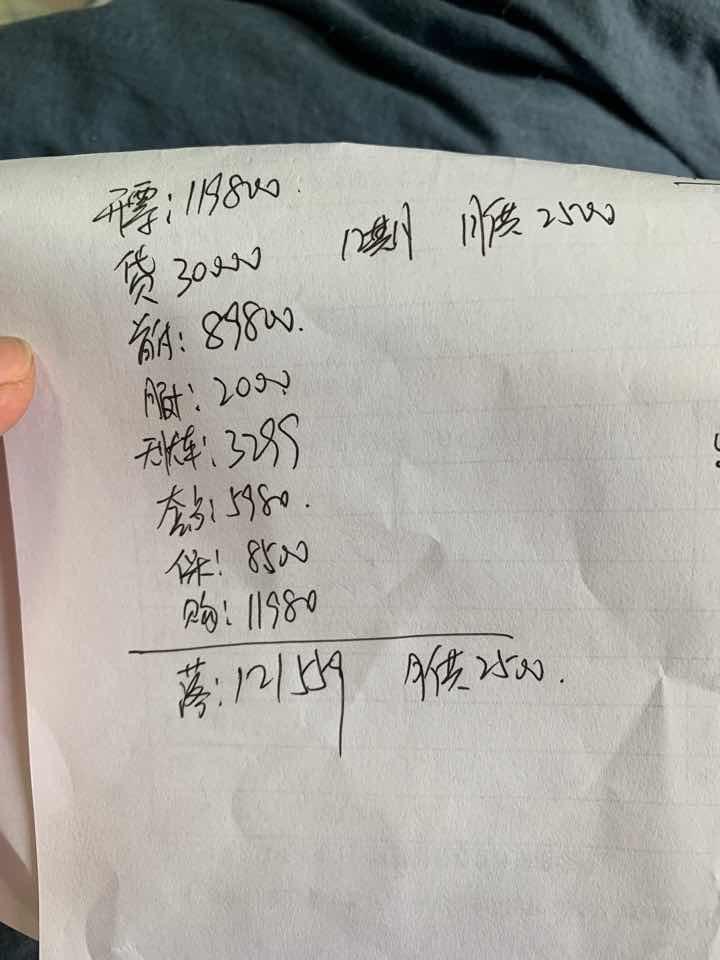 开票：119800.
贷 30000 12期 月供 2500
首付：89800.
服：2000
3299
套：5980.
保：8500
购：11980
落：121559 月供2500.